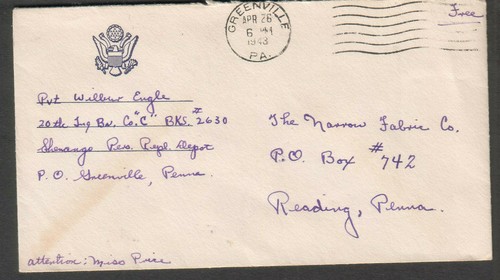 GREENVILLE
APR 26
6 PM
1943
PA.
Free
Pvt Wilbur Engle
20th Trg Bn. Co. "C" BKS. # 2630
Shenango Pers. Repl. Depot
P. O. Greenville, Penna.
The Narrow Fabric Co.
P.O. Box # 742
Reading, Penna.
attention: Miss Price